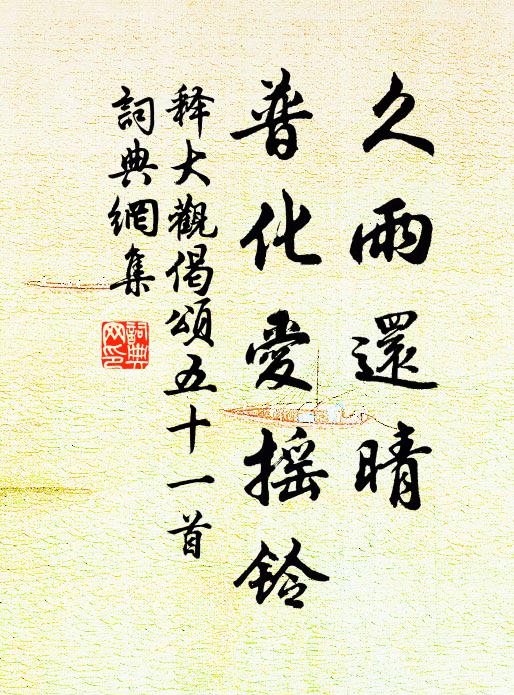 久雨還晴
普化愛摇鈴
释大觀偈頌五十一首
詞典網集
詞典网印